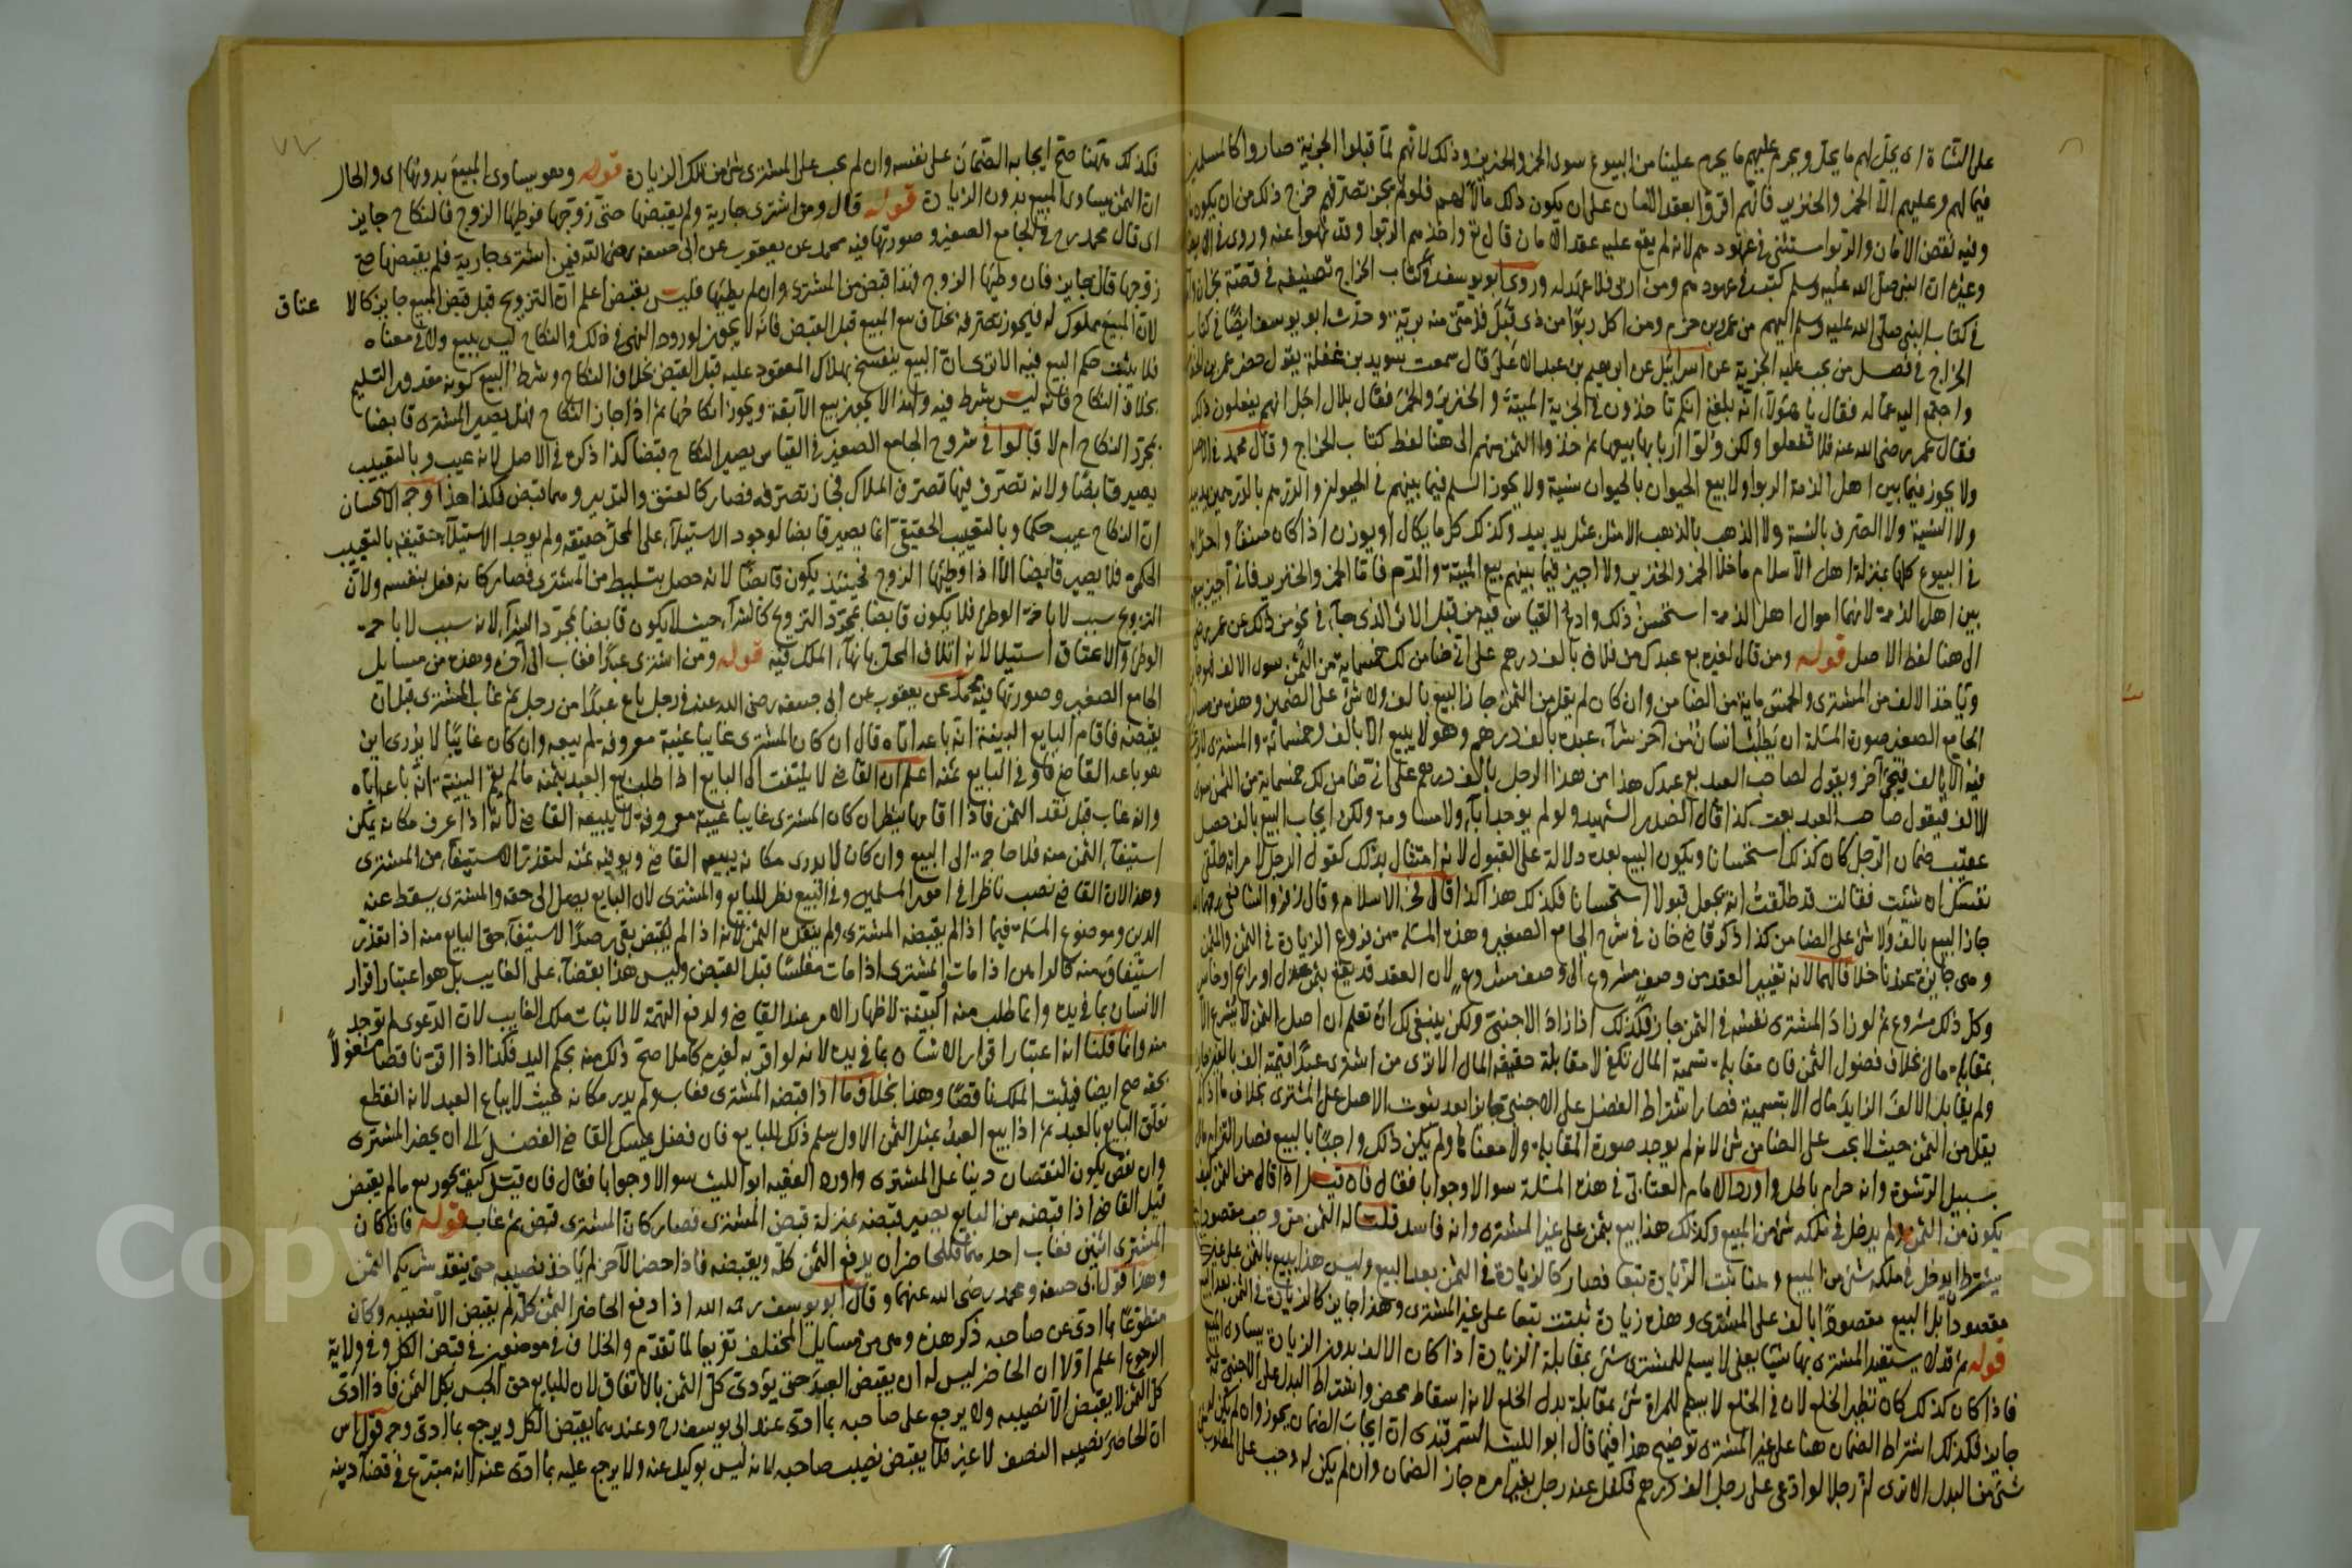 على الشاة اى يحل لهم ما يحل ويحرم عليهم ما يحرم علينا من البيوع سوى الخمر والخنزير وذلك لانهم لما قبلوا الجزية صاروا كالمسلمين
فيما لهم وعليهم الا الخمر والخنزير فانهم اقروا بعقد الامان على ان يكون ذلك مالا لهم فلو لم يجز تصرفهم خرج ذلك من ان يكون
وفيه نقض الامان والربوا مستثنى فى عهودهم لانه لم يقع عليه عقد الامان قال تع واخذهم الربوا وقد نهوا عنه وروى
وغيره ان النبى صلى الله عليه وسلم كتب فى عهودهم ومن اربى فلا عهد له وروى ابو يوسف فى كتاب الخراج تصنيفه فى قصة نجران
فى كتاب النبى صلى الله عليه وسلم اليهم من عمرو بن حزم ومن اكل ربوا من ذى قبل فذمتى منه برية وحدث ابو يوسف ايضا فى كتاب
الخراج فى فصل من يجب عليه الجزية عن اسرائيل عن ابرهيم بن عبد الاعلى قال سمعت سويد بن غفلة يقول حضر عمر بن
واجتمع اليه عماله فقال يا هؤلاء انه بلغنى انكم تاخذون فى الجزية الميتة والخنزير والخمر فقال بلال اجل انهم يفعلون ذلك
فقال عمر رضى الله عنه فلا تفعلوا ولكن ولوا اربابها بيعها ثم خذوا الثمن منهم الى هنا لفظ كتاب الخراج وقال محمد فى الاصل
ولا يجوز فيما بين اهل الذمة الربوا ولا بيع الحيوان بالحيوان نسية ولا يجوز السلم فيما بينهم فى الحيوان والدرهم بالدرهمين يدا بيد
ولا النسية ولا الصرف بالنسية ولا الذهب بالذهب الا مثل بمثل يد بيد وكذلك كل ما يكال او يوزن اذا كان صنفا واحدا
فى البيوع كلها بمنزلة اهل الاسلام ما خلا الخمر والخنزير ولا اجيز فيما بينهم بيع الميتة والدم فاما الخمر والخنزير فانى اجيز بيعه
بين اهل الذمة لانهما اموال اهل الذمة استحسن ذلك وادع القياس فيه من قبل الاثر الذى جاء فى نحو من ذلك عن عمر
الى هنا لفظ الاصل قوله ومن قال لغيره بع عبدك من فلان بالف درهم على انى ضامن لك خمسماية من الثمن سوى الالف
وياخذ الالف من المشترى والخمس ماية من الضامن وان كان لم يقل من الثمن جاز البيع بالف ولا شى على الضمين وهذه من مسائل
الجامع الصغير صورة المسئلة ان يطلب انسان من آخر شراء عبده بالف درهم وهو لا يبيع الا بالف وخمسمائة والمشترى لا يرغب
فيه الا بالف فيجئ آخر ويقول لصاحب العبد بع عبدك هذا من هذا الرجل بالف درهم على انى ضامن لك خمسماية من الثمن سوى
الالف فيقول صاحب العبد بعت كذا قال الصدر الشهيد ولو لم يوجد اباء ولا مساومة ولكن ايجاب البيع بالف حصل
عقيب ضمان الرجل كان كذلك استحسانا ويكون البيع بعده دلالة على القبول لانه امتثال بذلك كقول الرجل لامراته طلقى
نفسك ان شئت فقالت قد طلقت انه يجعل قبولا استحسانا فكذلك هذا كذا قال فخر الاسلام وقال زفر والشافعى
جاز البيع بالف ولا شئ على الضامن كذا ذكر قاضى خان فى شرح الجامع الصغير وهذه المسئلة من فروع الزيادة فى الثمن والمثمن
وهى جايزة عندنا خلافا لهما لانه تغيير العقد من وصف مشروع الى وصف مشروع لان العقد قد يقع بثمن عدل او رابح او خاسر
وكل ذلك مشروع ثم لو زاد المشترى نفسه فى الثمن جاز فكذلك اذا زاد الاجنبى ولكن ينبغى لك ان تعلم ان اصل الثمن لا يشرع الا
بمقابلة مال بخلاف فضول الثمن فان مقابلة تسمية المال تكفى لا مقابلة حقيقة المال الا ترى من اشترى عبدا قيمته الف بالفين
ولم يقابل الالف الزايد مال الا بتسمية فصار اشتراط الفضل على الاجنبى جايزا بعد ثبوت الاصل على المشترى بخلاف ما اذا لم
يقل من الثمن حيث لا يجب على الضامن شئ لانه لم يوجد صورة المقابلة ولا معناها ولم يكن ذلك واجبا بالبيع فصار التزام مال
بسبيل الرشوة وانه حرام باطل واورد الامام العتابى فى هذه المسئلة سوالا وجوابا فقال فان قيل اذا قال من الثمن كيف
يكون من الثمن ولم يدخل فى ملكه شئ من المبيع وكذلك هذا بيع بثمن على غير المشترى وانه فاسد قلنا له الثمن متى وجب مقصودا
يشترط ان يدخل فى ملكه شئ من المبيع وهنا يثبت الزيادة تبعا فصار كالزيادة فى الثمن بعد البيع وليس هذا ببيع بالثمن على غيره
مقصودا بل البيع مقصودا بالف على المشترى وهذه زيادة ثبتت تبعا على غير المشترى وهذا جايز كالزيادة فى الثمن بعد البيع
قوله ثم قد لا يستفيد المشترى بها شيئا يعنى لا يسلم للمشترى شئ بمقابلة الزيادة اذا كان الالف بدون الزيادة يساوى المبيع
فاذا كان كذلك كان نظير الخلع لان فى الخلع لا يسلم للمراة شئ بمقابلة بدل الخلع لانه اسقاط محض واشتراط البدل على الاجنبى ثمة
جايز فكذلك اشتراط الضمان هنا على غير المشترى توضيح هذا فيما قال ابو الليث السمرقندى ان ايجاب الضمان يجوز وان لم يكن
شئ من البدل الا ترى ان رجلا لو ادعى على رجل الف درهم فكفل عنه رجل بغير امره جاز الضمان وان لم يكن له وجب على المطلوب
فكذلك ههنا صح ايجابه الضمان على نفسه وان لم يجب على المشترى شئ من تلك الزيادة قوله وهو يساوى المبيع بدونها اى والحال
ان الثمن يساوى المبيع بدون الزيادة قوله قال ومن اشترى جارية ولم يقبضها حتى زوجها فوطئها الزوج فالنكاح جايز
اى قال محمد رح فى الجامع الصغير وصورتها فيه محمد عن يعقوب عن ابى حنيفة رضى الله فيمن اشترى جارية فلم يقبضها حتى
زوجها قال جايز فان وطئها الزوج فهذا قبض من المشترى وان لم يطئها فليس بقبض اعلم ان التزويج قبل قبض المبيع جايز كالا
عتاق
لان المبيع مملوك له فيجوز تصرفه بخلاف بيع المبيع قبل القبض فانه لا يجوز لورود النهى فى ذلك والنكاح ليس ببيع ولا فى معناه
فلا يثبت حكم البيع فيه الا ترى ان البيع ينفسخ بهلاك المعقود عليه قبل القبض بخلاف النكاح وشرط البيع كونه مقدور التسليم
بخلاف النكاح فانه ليس شرط فيه ولهذا لا يجوز بيع الآبقة ويجوز انكاحها ثم اذا جاز النكاح هل يصير المشترى قابضا
بمجرد النكاح ام لا قالوا فى شروح الجامع الصغير فى القياس يصير النكاح قبضا كذا ذكره فى الاصل لانه عيب وبالتعييب
يصير قابضا ولانه تصرف فيها تصرف الملاك فجاز تصرفه فصار كالعتق والتدبير وهما قبض فكذا هذا وجه الاستحسان
ان النكاح عيب حكما وبالتعييب الحقيقى انما يصير قابضا لوجود الاستيلاء على المحل حقيقة ولم يوجد الاستيلاء حقيقة بالتعييب
الحكمى فلا يصير قابضا الا اذا وطئها الزوج فحينئذ يكون قابضا لانه حصل بتسليط من المشترى فصار كانه فعل بنفسه ولان
التزويج سبب لاباحة الوطئ فلا يكون قابضا بمجرد التزويج كالشراء حيث لا يكون قابضا بمجرد الشراء لانه سبب لاباحة
الوطئ والاعتاق استيلاء لانه اتلاف المحل بانهاء الملك فيه قوله ومن اشترى عبدا فغاب الى آخره وهذه من مسايل
الجامع الصغير وصورتها فيه محمد عن يعقوب عن ابى حنيفة رضى الله عنه فى رجل باع عبدا من رجل ثم غاب المشترى قبل ان
يقبضه فاقام البايع البينة انه باعه اياه قال ان كان المشترى غايبا غيبة معروفة لم يبعه وان كان غايبا لا يدرى اين
هو باعه القاضى واوفى البايع ثمنه اعلم ان القاضى لا يلتفت الى البايع اذا طلب بيع العبد بثمنه ما لم يقم البينة انه باعه اياه
وانه غاب قبل نقد الثمن فاذا اقامها ينظر ان كان المشترى غايبا غيبة معروفة لا يبيعه القاضى لانه اذا عرف مكانه يمكن
استيفاء الثمن منه فلا حاجة الى البيع وان كان لا يدرى مكانه يبيعه القاضى ويوفيه ثمنه لتعذر الاستيفاء من المشترى
وهذا لان القاضى نصب ناظرا فى امور المسلمين وفى البيع نظر للبايع والمشترى لان البايع يصل الى حقه والمشترى يسقط عنه
الدين وموضوع المسئلة فيما اذا لم يقبضه المشترى ولم ينقد الثمن لانه اذا لم يقبض بقى رصدا لاستيفاء حق البايع منه اذا تعذر
استيفاؤه منه كالراهن اذا مات والمشترى اذا مات مفلسا قبل القبض وليس هذا بقضاء على الغايب بل هو اعتبار اقرار
الانسان بما فى يده وانما طلب منه البينة لاظهار الامر عند القاضى ولدفع التهمة لا لاثبات ملك الغايب لان الدعوى لم توجد
منه وانما قلنا انه اعتبار اقرار الانسان بما فى يده لانه لو اقر به لغيره كاملا صح ذلك منه بحكم اليد فكذا اذا اقر ناقصا مشغولا
بحقه صح ايضا فيثبت الملك ناقصا وهذا بخلاف ما اذا قبضه المشترى فغاب ولم يدر مكانه بحيث لا يباع العبد لانه انقطع
تعلق البايع بالعبد ثم اذا بيع العبد بمثل الثمن الاول سلم ذلك للبايع فان فضل يمسك القاضى الفضل الى ان يحضر المشترى
وان نقص يكون النقصان دينا على المشترى واورد الفقيه ابو الليث سوالا وجوابا فقال فان قيل كيف يجوز بيع ما لم يقبض
قيل القاضى اذا قبضه من البايع يصير قبضه بمنزلة قبض المشترى فصار كان المشترى قبض ثم غاب قوله فان كان
المشترى اثنين فغاب احدهما فللحاضر ان يدفع الثمن كله ويقبضه فاذا حضر الآخر لم ياخذ نصيبه حتى ينقد شريكه الثمن
وهذا قول ابى حنيفة ومحمد رضى الله عنهما وقال ابو يوسف رحمه الله اذا دفع الحاضر الثمن كله لم يقبض الا نصيبه وكان
متطوعا بما ادى عن صاحبه ذكر هذه وهى من مسايل المختلف تفريعا لما تقدم والخلاف فى موضعين فى قبض الكل وفى ولاية
الرجوع اعلم اولا ان الحاضر ليس له ان يقبض العبد حتى يؤدى كل الثمن بالاتفاق لان للبايع حق الحبس بكل الثمن فاذا ادى
كل الثمن لا يقبض الا نصيبه ولا يرجع على صاحبه بما ادى عند ابى يوسف رح وعندهما يقبض الكل ويرجع بما ادى وجه قول س
ان الحاضر نصيبه النصف لا غير فلا يقبض نصيب صاحبه لانه ليس بوكيل عنه ولا يرجع عليه بما ادى عنه لانه متبرع فى قضاء دينه